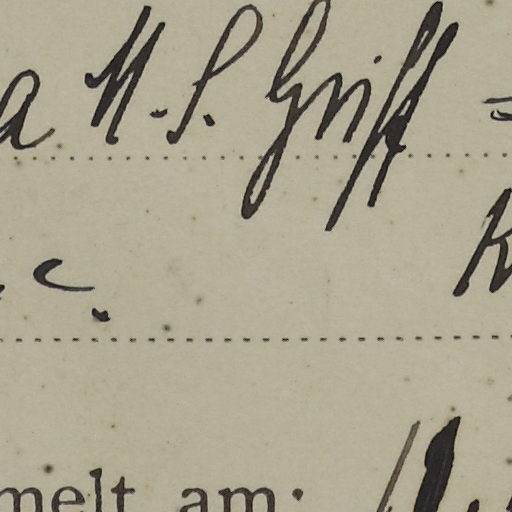 a M. S. Griff =
. c. K
melt am: